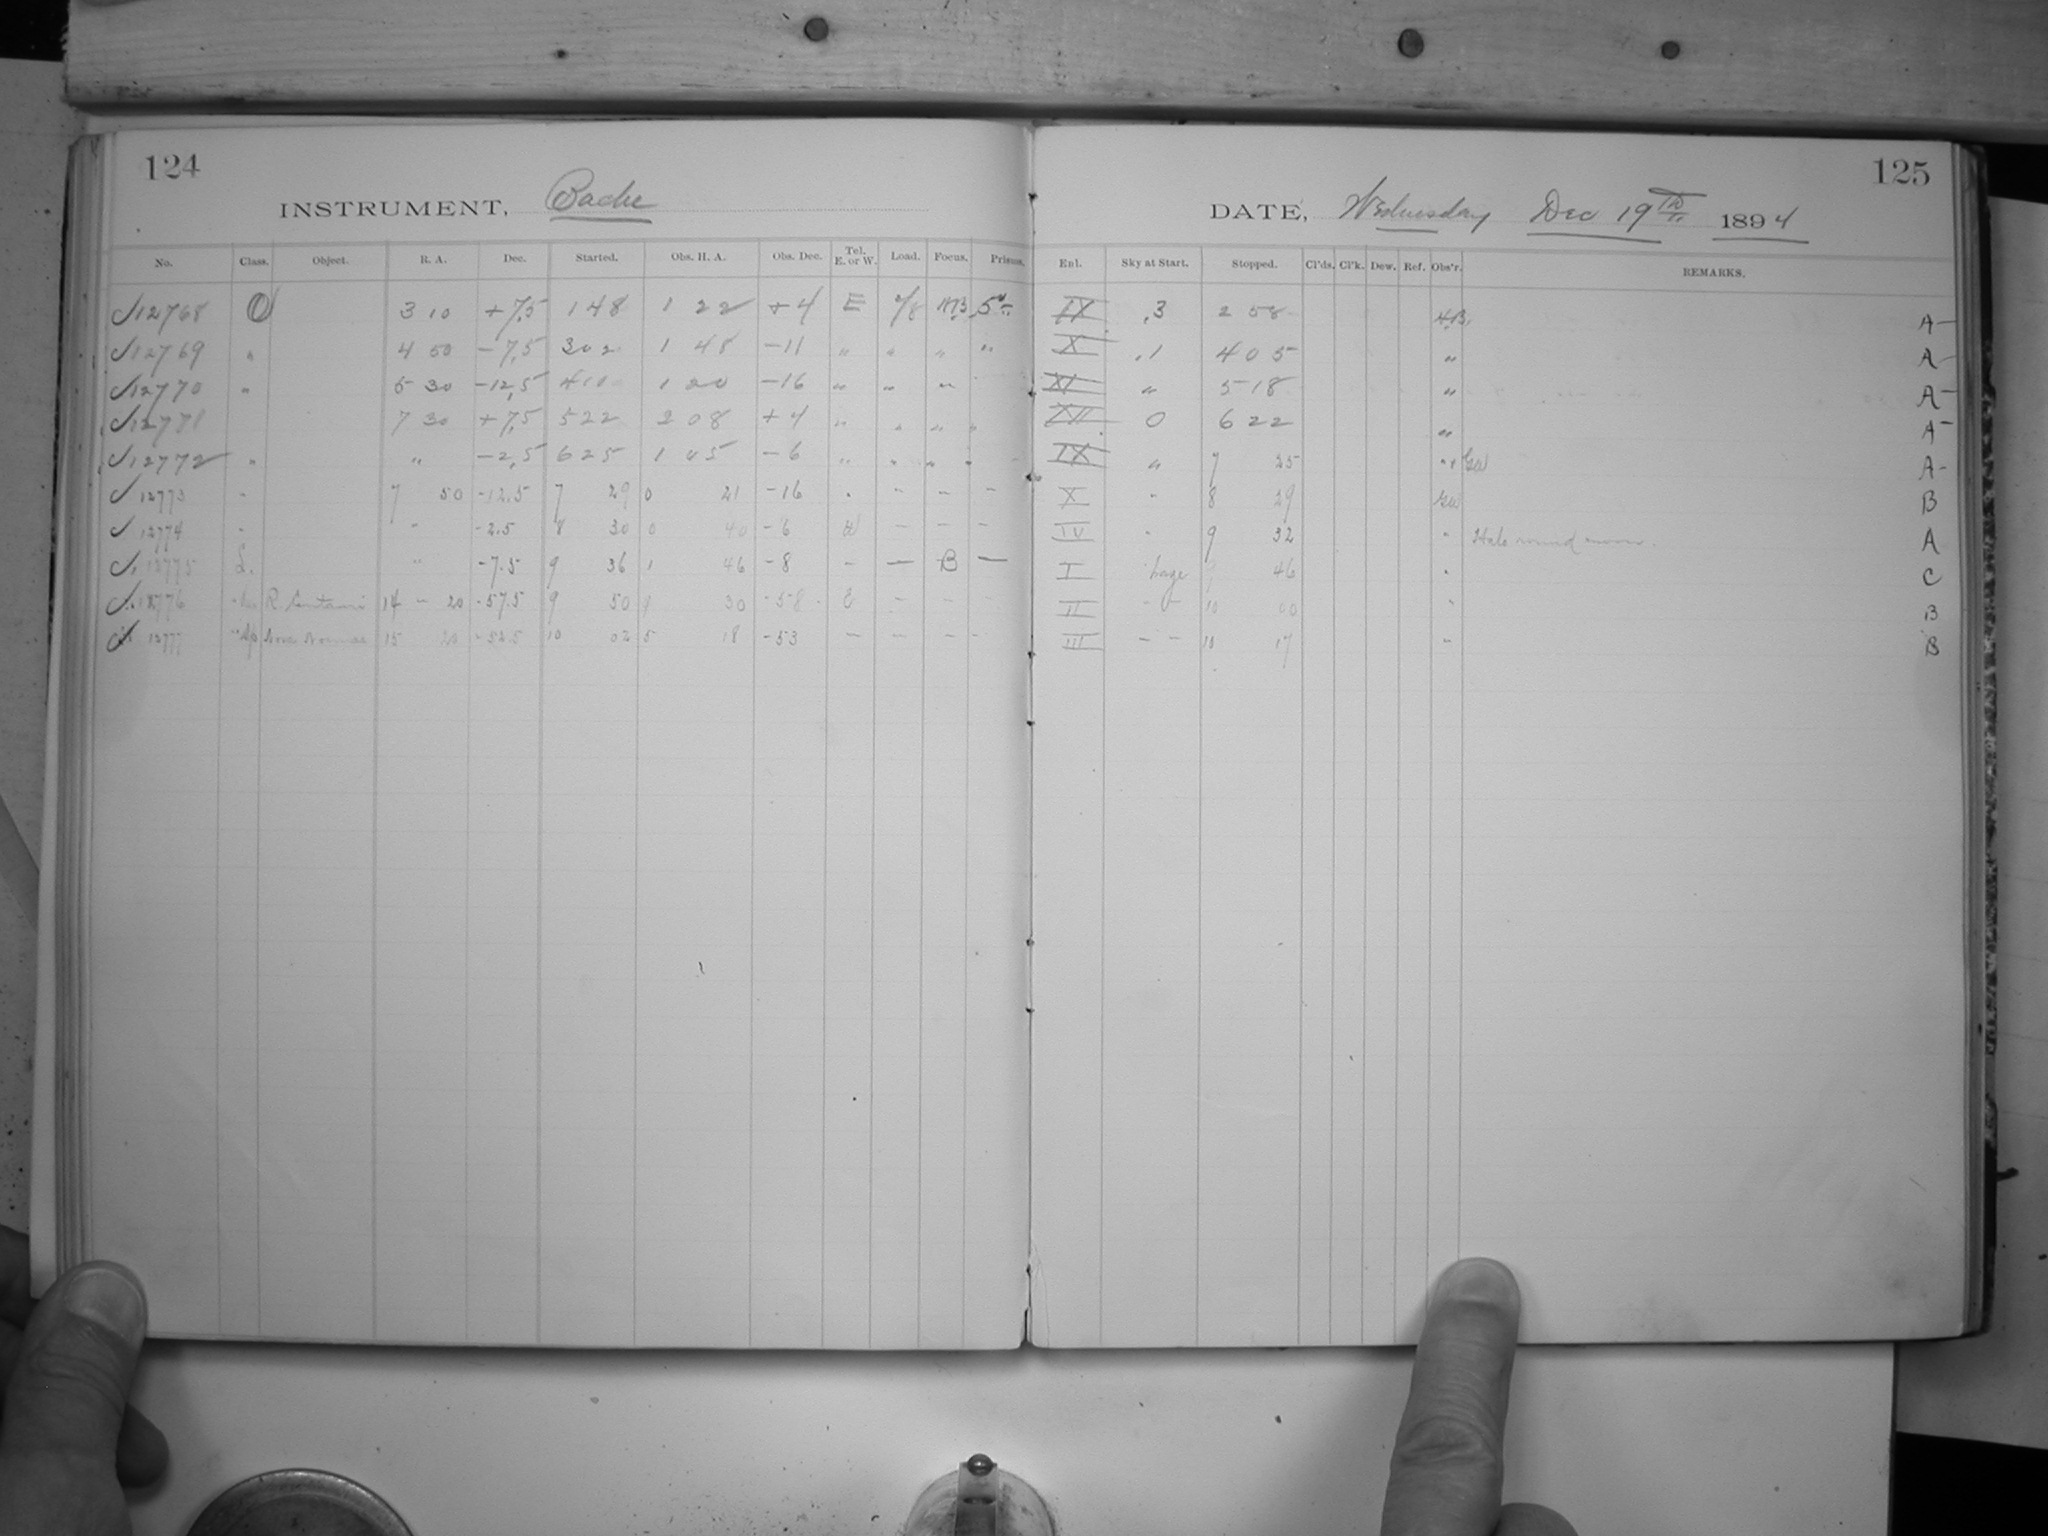 124
INSTRUMENT, Bache
No. Class. Object. R. A. Dec. Started. Obs. H. A. Obs. Dec. Tel. E. or W. Load. Focus. Prisms.
12768 O 3 10 +7.5 1 48 1 22 +4 E
12769 " 4 50 -7.5 3 02 1 48 -11 " " " "
12770 " 5 30 -12.5 4 10 1 20 -16 " " "
12771 7 30 +7.5 5 22 2 08 +4 " " " "
12772 " " -2.5 6 25 1 45 -6 " " " "
12773 - 7 50 -12.5 7 29 0 21 -16 - - -
12774 - " -2.5 8 30 0 40 -6 W - - -
12775 L. " -7.5 9 36 1 46 -8 - — B —
12776 R Centauri 14 - 20 -57.5 9 50 30 -58 E - - -
12777 Nova Normae 15 20 -52.5 10 02 5 18 -53 - - - -
125
DATE, Wednesday Dec 19TH 1894
Enl. Sky at Start. Stopped. Cl'ds. Cl'k. Dew. Ref. Obs'r. REMARKS.
IX .3 2 58 H.B. A-
X .1 4 05 " A-
XI " 5 18 " A-
XII 0 6 22 " A-
IX " 7 25 A-
X " 8 29 B
IV " 9 32 " Halo round moon. A
I haze 46 " C
II - - 10 00 " B
III - - 10 17 " B